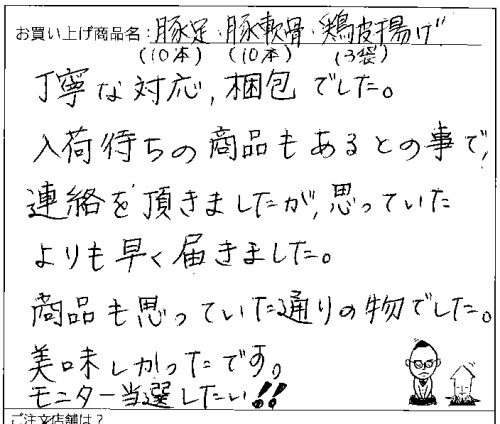 お買い上げ商品名：豚足・豚軟骨・鶏皮揚げ
(10本) (10本) (3袋)
丁寧な対応,梱包でした。
入荷待ちの商品もあるとの事で,
連絡を頂きましたが,思っていた
よりも早く届きました。
商品も思っていた通りの物でした。
美味しかったです。
モニター当選したい!!
ご注文店舗は？